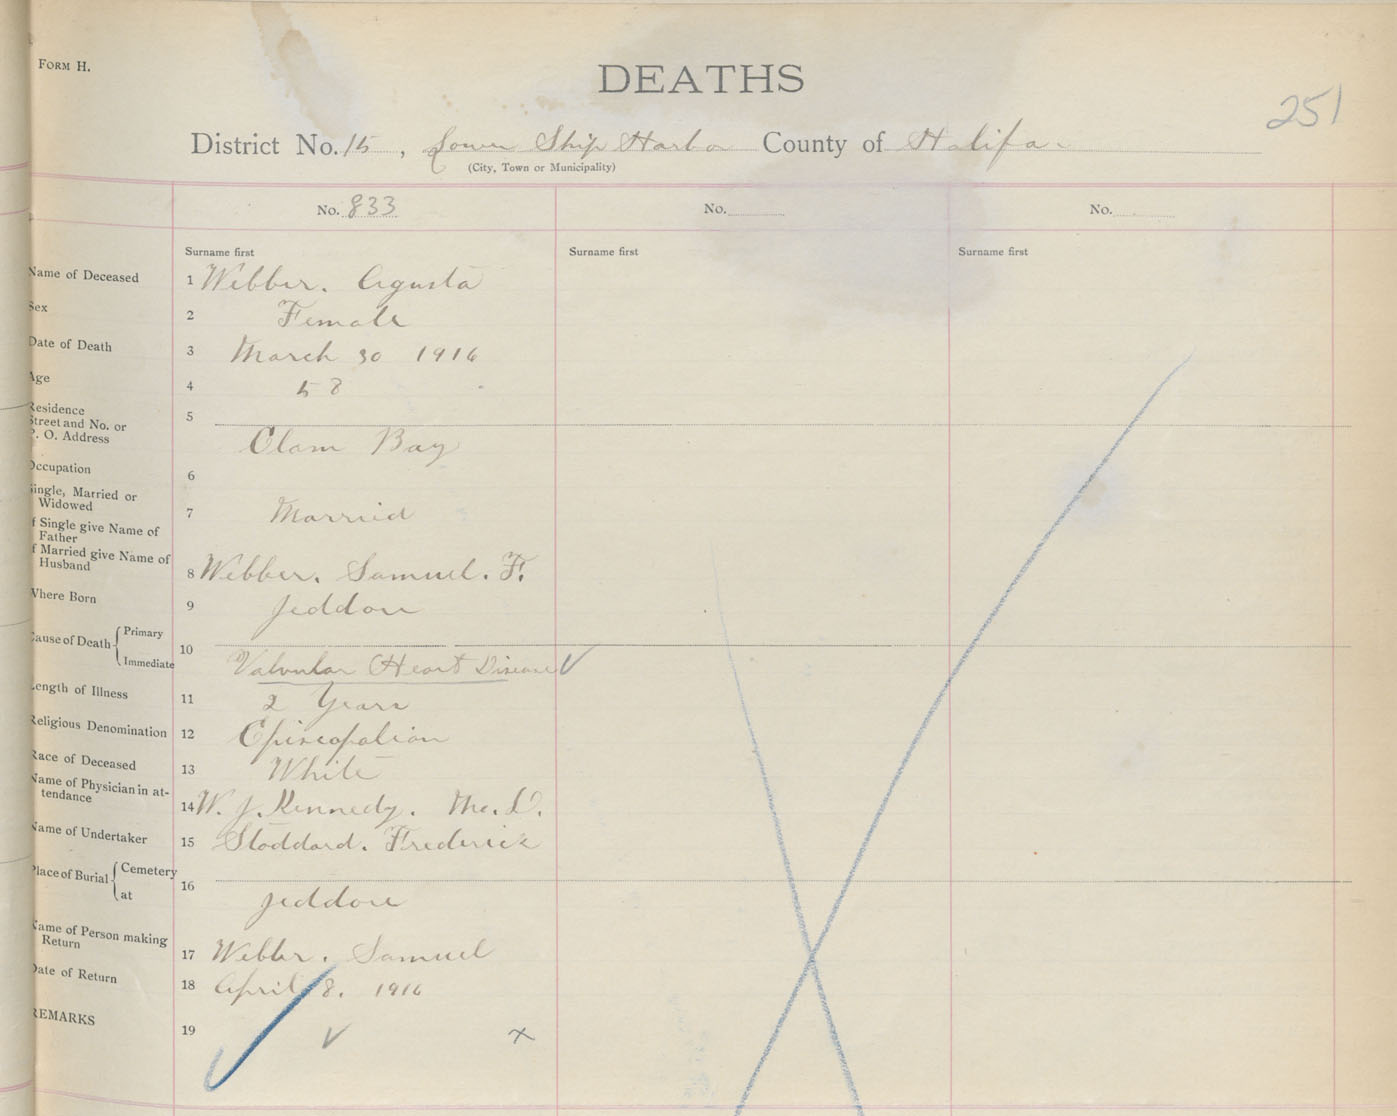 FORM H.
DEATHS
251
District No. 15, Lower Ship Harbor County of Halifa
(City, Town or Municipality)
No. 833 No. No.
Surname first Surname first Surname first
Name of Deceased 1 Webber. Agusta
Sex 2 Female
Date of Death 3 March 30 1916
Age 4 58
Residence
Street and No. or 5
P. O. Address Clam Bay
Occupation 6
Single, Married or
Widowed 7 Married
If Single give Name of
Father
If Married give Name of
Husband 8 Webber. Samuel. F.
Where Born 9 Jeddore
Cause of Death { Primary
Immediate 10 Valvular Heart Disease ✓
Length of Illness 11 2 Years
Religious Denomination 12 Episcopalian
Race of Deceased 13 White
Name of Physician in at-
tendance 14 W. J. Kennedy. M.D.
Name of Undertaker 15 Stoddard. Frederick
Place of Burial { Cemetery
at 16 Jeddore
Name of Person making
Return 17 Webber. Samuel
Date of Return 18 April 8. 1916
REMARKS 19 ✓ x